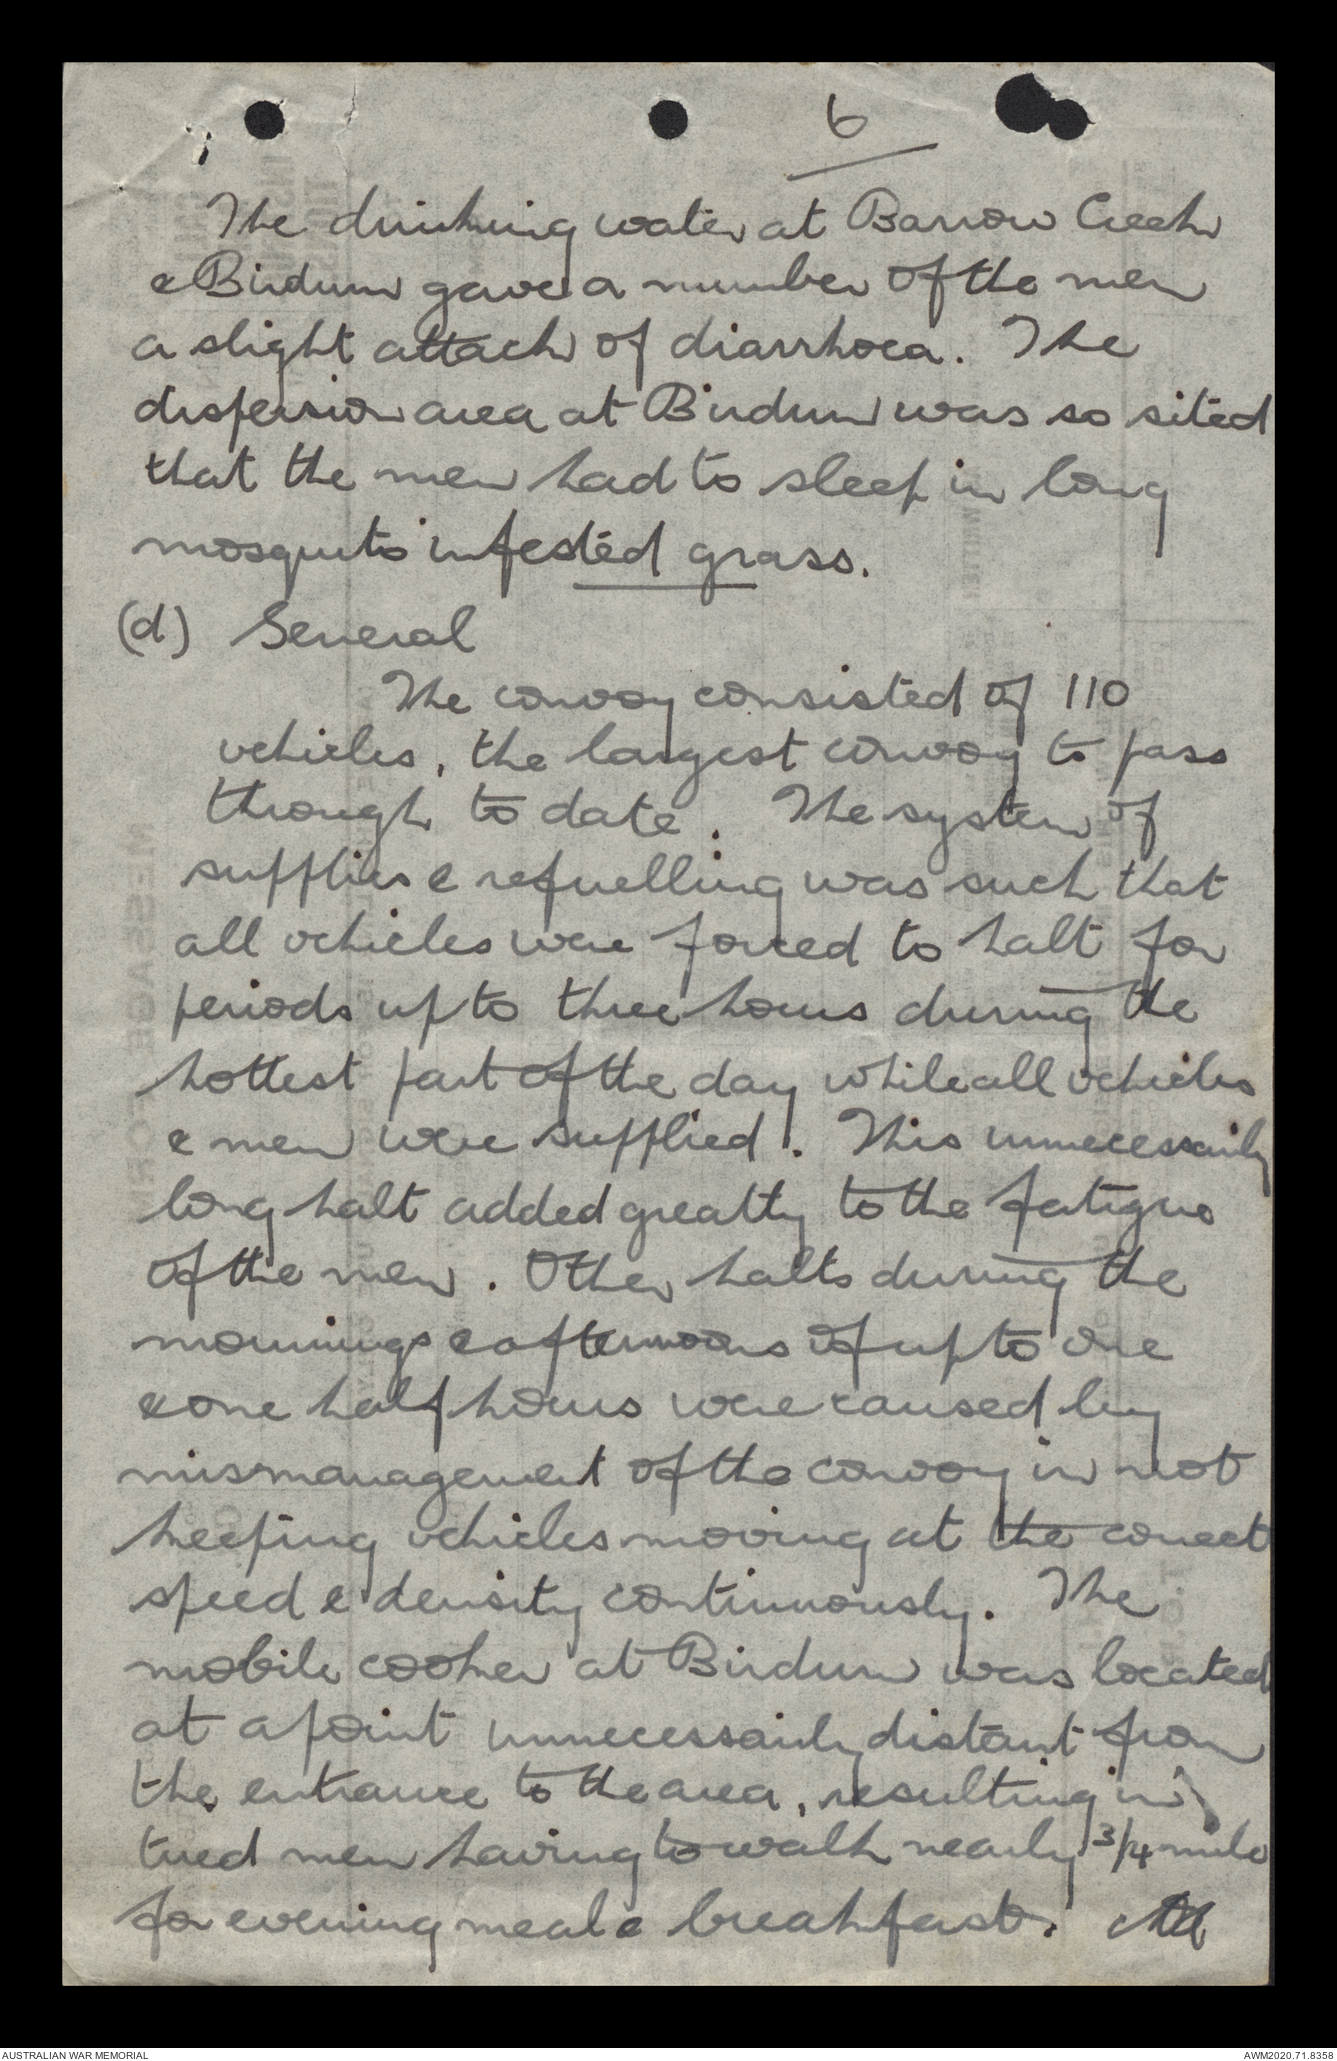 6
The drinking water at Barrow Creek
& Birdum gave a number of the men
a slight attack of diarrhoea. The
dispersion area at Birdum was so sited
that the men had to sleep in long
mosquito infested grass.
(d) General
The convoy consisted of 110
vehicles, the largest convoy to pass
through to date. The system of
supplies & refuelling was such that
all vehicles were forced to halt for
periods up to three hours during the
hottest part of the day while all vehicles
& men were supplied. This unnecessarily
long halt added greatly to the fatigue
of the men. Other halts during the
mornings & afternoons of up to one
& one half hours were caused by
mismanagement of the convoy in not
keeping vehicles moving at the correct
speed & density continuously. The
mobile cooker at Birdum was located
at a point unnecessarily distant from
the entrance to the area, resulting in
tired men having to walk nearly 3/4 mile
for evening meal & breakfast.
AUSTRALIAN WAR MEMORIAL
AWM2020.71.8358